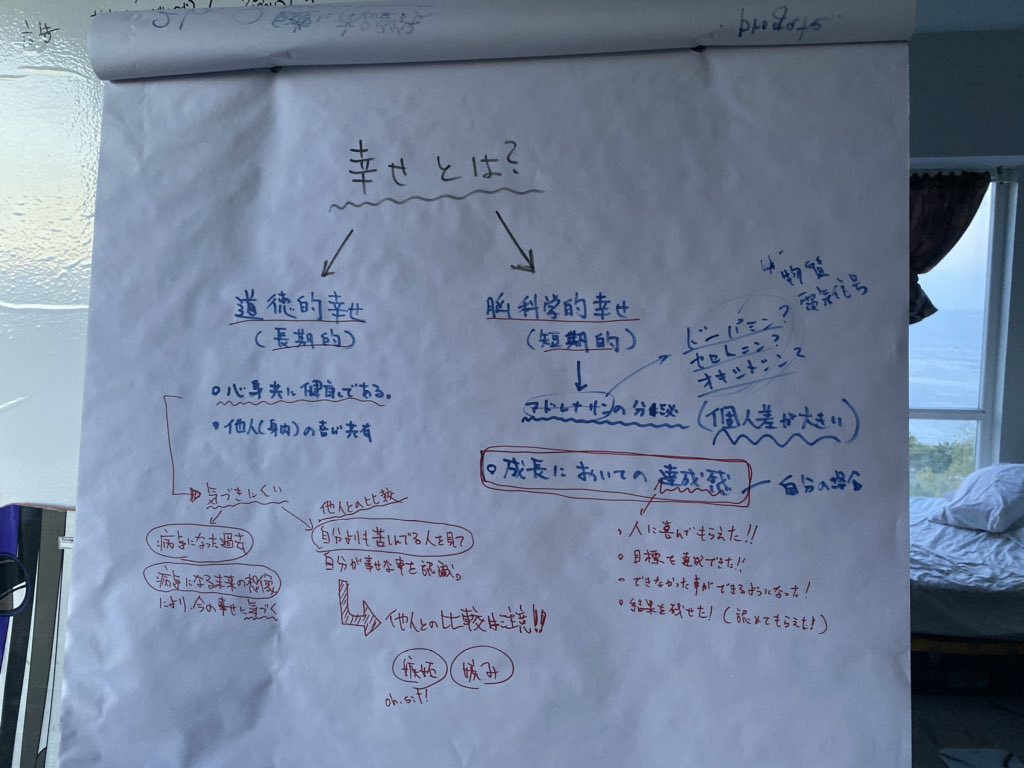 幸せとは?
道徳的幸せ
(長期的)
心身共に健康である。
他人(身内)の喜び共有
気づきにくい
病気になった過去
病気になる未来の想像
により、今の幸せに気づく
他人との比較
自分よりも苦しんでる人を見て
自分が幸せな事を認識。
他人との比較は注意!!
嫉妬
嫉み
oh.sit!
脳科学的幸せ
(短期的)
アドレナリンの分泌
物質
電気信号
ドーパミン?
セロトニン?
オキシトシン?
(個人差が大きい)
成長においての達成感
自分の場合
人に喜んでもらえた!!
目標を達成できた!!
できなかった事ができるようになった!
結果を残せた!(認めてもらえた!)